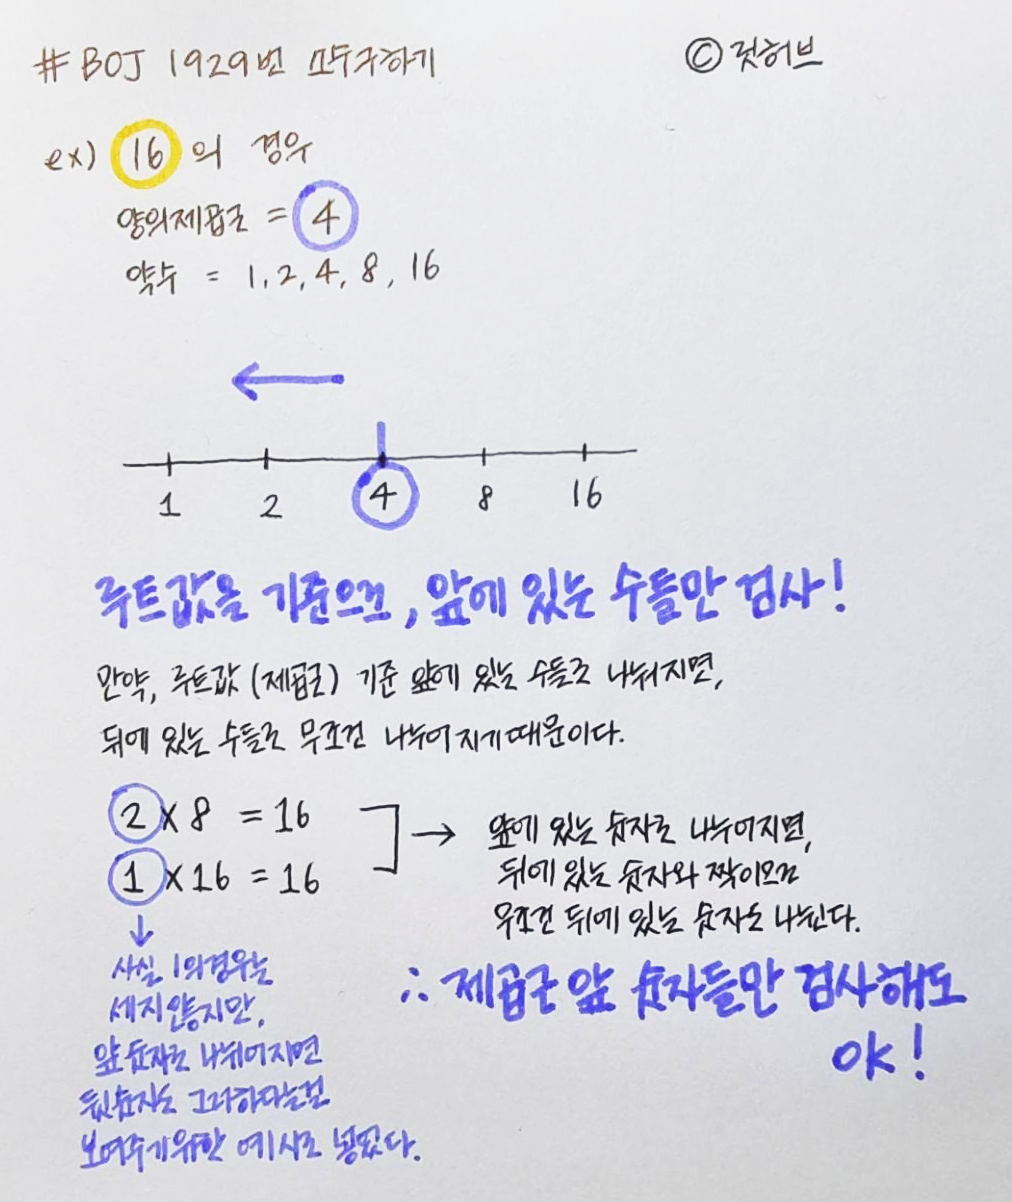 # BOJ 1929번 소수구하기
© 깃허브
ex) 16 의 경우
양의제곱근 = 4
약수 = 1, 2, 4, 8, 16
1 2 4 8 16
루트값을 기준으로, 앞에 있는 수들만 검사!
만약, 루트값 (제곱근) 기준 앞에 있는 수들로 나눠지면,
뒤에 있는 수들로 무조건 나누어 지기때문이다.
2 × 8 = 16
1 × 16 = 16
→ 앞에 있는 숫자로 나누어지면,
뒤에 있는 숫자와 짝이므로
무조건 뒤에 있는 숫자도 나뉜다.
사실 1의경우는
세지 않지만,
앞 숫자로 나뉘어지면
뒷숫자도 그러하다는걸
보여주기위한 예시로 넣었다.
∴ 제곱근 앞 숫자들만 검사해도
OK!